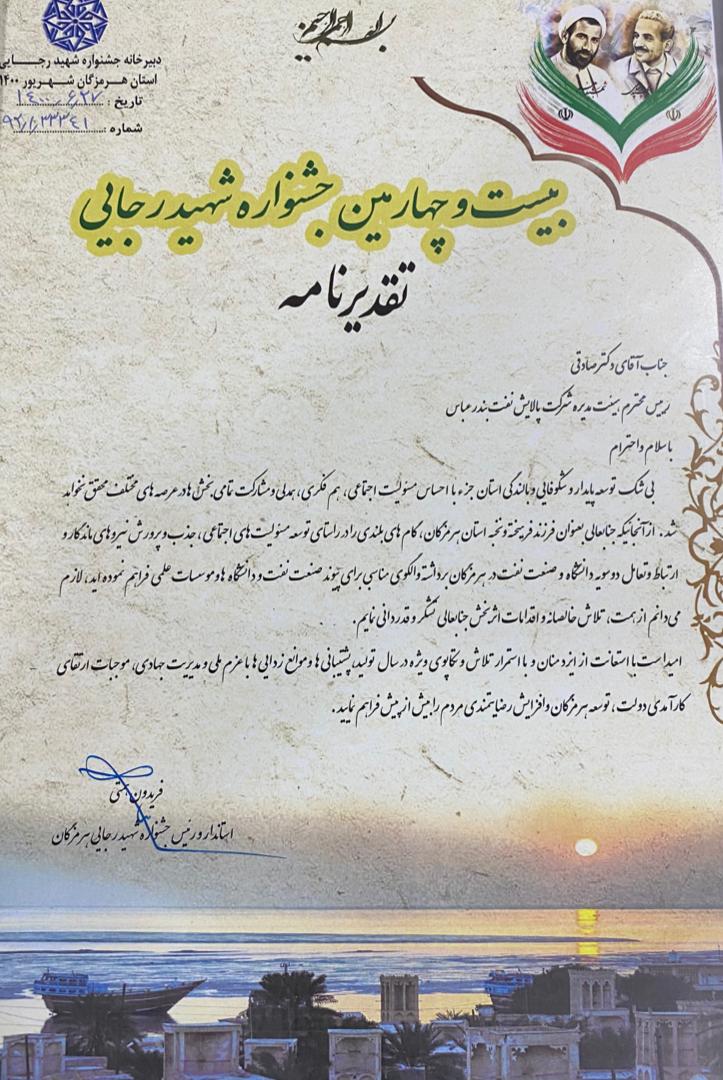 بسم الله الرحمن الرحیم
دبیرخانه جشنواره شهید رجــــایی
استان هـرمزگان شـهریور ۱۴۰۰
تاریخ : ۱۴۰۰/۶/۲۷
شماره : ۹۲/۱/۳۳۳۴۱
بیست و چهارمین جشنواره شهید رجایی
تقدیرنامه
جناب آقای دکتر صادقی
رییس محترم هیئت مدیره شرکت پالایش نفت بندرعباس
با سلام و احترام
بی شک توسعه پایدار و شکوفایی و بالندگی استان جزء با احساس مسئولیت اجتماعی، هم فکری، همدلی و مشارکت تمامی بخش ها در عرصه های مختلف محقق نخواهد
شد. از آنجائیکه جنابعالی بعنوان فرزند فرهیخته و نخبه استان هرمزگان، گام های بلندی را در راستای توسعه مسئولیت های اجتماعی، جذب و پرورش نیروهای ماندگار و
ارتباط و تعامل دوسویه دانشگاه و صنعت نفت در هرمزگان برداشته و الگوی مناسبی برای پیوند صنعت نفت و دانشگاه ها و موسسات علمی فراهم نموده اید، لازم
می دانم از همت، تلاش خالصانه و اقدامات اثربخش جنابعالی تشکر و قدردانی نمایم.
امید است با استعانت از ایزد منان و با استمرار تلاش و تکاپوی ویژه در سال تولید، پشتیبانی ها و مانع زدایی ها با عزم ملی و مدیریت جهادی، موجبات ارتقای
کارآمدی دولت، توسعه هرمزگان و افزایش رضایتمندی مردم را بیش از پیش فراهم نمایید.
فریدون همتی
استاندار و رئیس جشنواره شهید رجایی هرمزگان